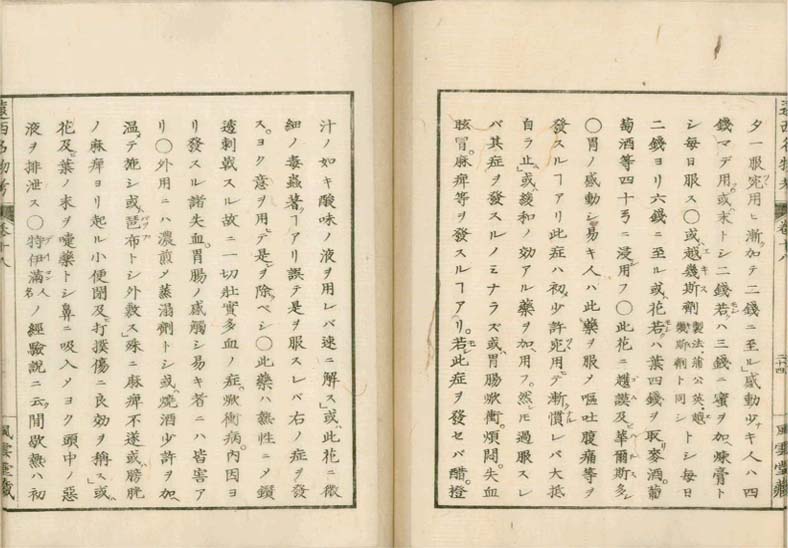 夕一服宛用ヒ漸々加テ二錢ニ至ル」感動少ナキ人ハ四
錢マデ用」或ハ末トシ二錢若クハ三錢ニ蜜ヲ加ヘ煉膏ト
シ毎日服ス〇或ハ越幾斯劑製法、蒲公英越幾斯劑ト同シトシ毎日
二錢ヨリ六錢ニ至ル或ハ花若クハ葉四錢ヲ取リ麥酒。葡
萄酒等四十弓ニ浸シ用フ〇此花ニ遏謨及ビ華爾斯多
〇胃ノ感動シ易キ人ハ此藥ヲ服メ嘔吐腹痛等ヲ
發スルヿアリ此症ハ初メ少許宛用テ漸ク慣レバ大抵
自ラ止ム」或ハ緩和ノ効アル藥ヲ加ヘ用フ。然レモ過服スレ
バ其症ヲ發スルノミナラズ或ハ胃腸焮衝。煩悶。失血
眩冒。麻痺等ヲ發スルヿアリ。若シ此症ヲ發セバ醋。橙
遠西名物考 卷十八 三十四 風雲堂藏
汁ノ如キ酸味ノ液ヲ用レバ速ニ解ス」或ハ此花ニ微
細ノ毒蟲著クヿアリ誤テ是ヲ服スレバ右ノ症ヲ發
ス。ヨク意ヲ用ヒテ是ヲ除クベシ〇此藥ハ熱性ニメ鑚
透刺戟スル故ニ一切壯實多血ノ症。焮衝病。內因ヨ
リ發スル諸失血。胃腸ノ感觸シ易キ者ニハ皆害ア
リ〇外用ニハ濃煎メ蒸溻劑トシ或ハ燒酒少許ヲ加ヘ
溫テ施シ或ハ琶布トシ外敷ス」殊ニ麻痺不遂或ハ膀胱
ノ麻痺ヨリ起ル小便閉及ビ打撲傷ニ良効ヲ稱ス」或ハ
花及ビ葉ノ末ヲ嚏藥トシ鼻ニ吸入メヨク頭中ノ惡
液ヲ排泄ス〇特伊滿人名ノ經驗說ニ云ク間歇熱ハ初
遠西名物考 卷十八 風雲堂藏